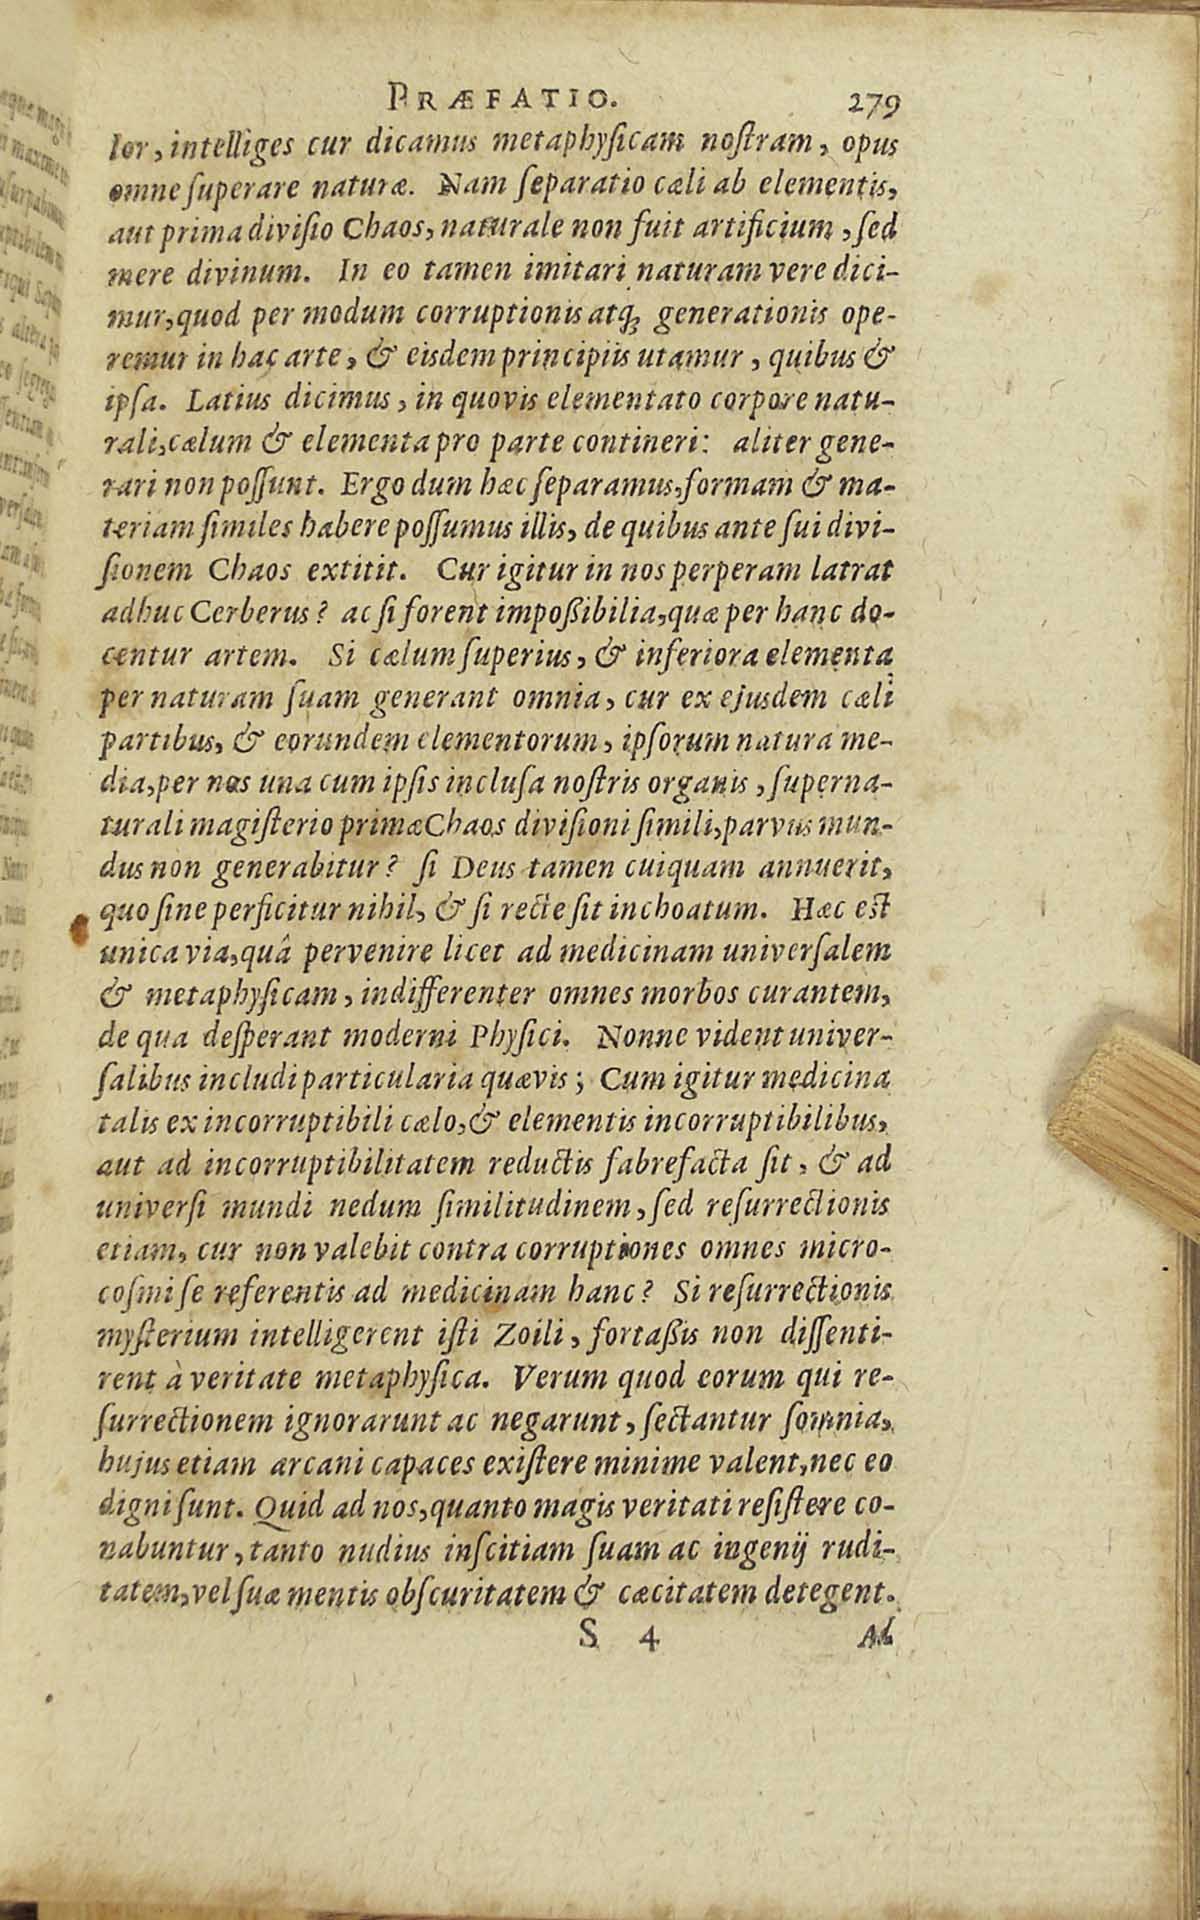 PRÆFATIO. 279
lor, intelliges cur dicamus metaphyſicam noſtram, opus
omne ſuperare naturæ. Nam ſeparatio cæli ab elementis,
aut prima diviſio Chaos, naturale non fuit artificium, ſed
mere divinum. In eo tamen imitari naturam vere dici-
mur, quod per modum corruptionis atq́ꝫ generationis ope-
remur in hac arte, & eisdem principiis utamur, quibus &
ipſa. Latius dicimus, in quovis elementato corpore natu-
rali, cælum & elementa pro parte contineri: aliter gene-
rari non poſſunt. Ergo dum hæc ſeparamus, formam & ma-
teriam ſimiles habere poſſumus illis, de quibus ante ſui divi-
ſionem Chaos extitit. Cur igitur in nos perperam latrat
adhuc Cerberus? ac ſi forent impoßibilia, quæ per hanc do-
centur artem. Si cælum ſuperius, & inferiora elementa
per naturam ſuam generant omnia, cur ex ejusdem cæli
partibus, & eorundem elementorum, ipſorum natura me-
dia, per nos una cum ipſis incluſa noſtris organis, ſuperna-
turali magiſterio primæ Chaos diviſioni ſimili, parvus mun-
dus non generabitur? ſi Deus tamen cuiquam annuerit,
quo ſine perficitur nihil, & ſi recte ſit inchoatum. Hæc eſt
unica via, quâ pervenire licet ad medicinam univerſalem
& metaphyſicam, indifferenter omnes morbos curantem,
de qua deſperant moderni Phyſici. Nonne vident univer-
ſalibus includi particularia quævis; Cum igitur medicina
talis ex incorruptibili cælo, & elementis incorruptibilibus,
aut ad incorruptibilitatem reductis fabrefacta ſit, & ad
univerſi mundi nedum ſimilitudinem, ſed reſurrectionis
etiam, cur non valebit contra corruptiones omnes micro-
coſmi ſe referentis ad medicinam hanc? Si reſurrectionis
myſterium intelligerent iſti Zoili, fortaßis non diſſenti-
rent à veritate metaphyſica. Verum quod eorum qui re-
ſurrectionem ignorarunt ac negarunt, ſectantur ſomnia,
hujus etiam arcani capaces exiſtere minime valent, nec eo
digni ſunt. Quid ad nos, quanto magis veritati reſiſtere co-
nabuntur, tanto nudius inſcitiam ſuam ac ingenij rudi-
tatem, vel ſuæ mentis obſcuritatem & cæcitatem detegent.
S 4 Ad